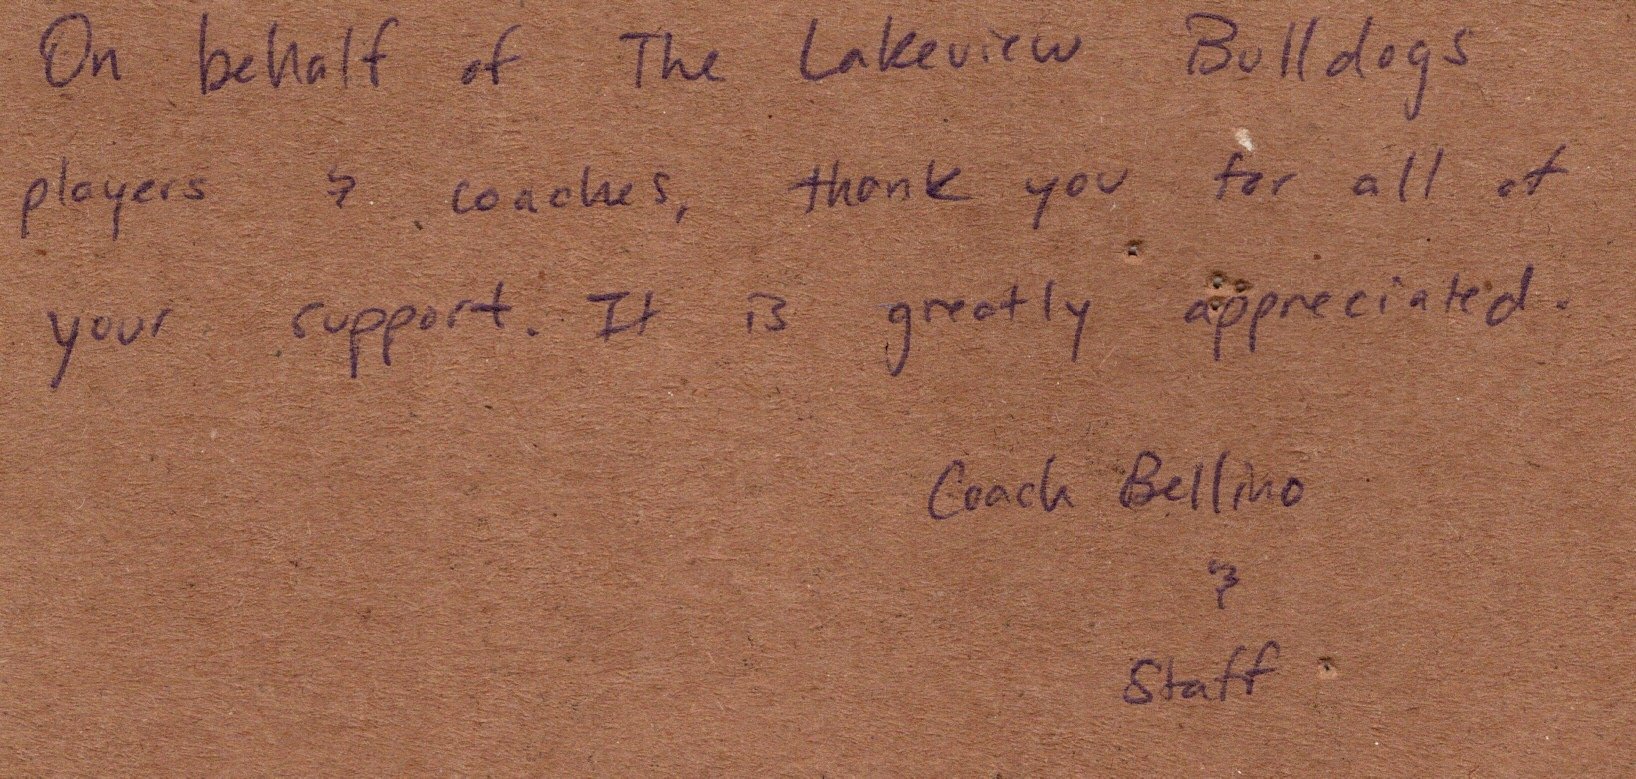 On behalf of The Lakeview Bulldogs
players & coaches, thank you for all of
your support. It is greatly appreciated.
Coach Bellino
&
Staff